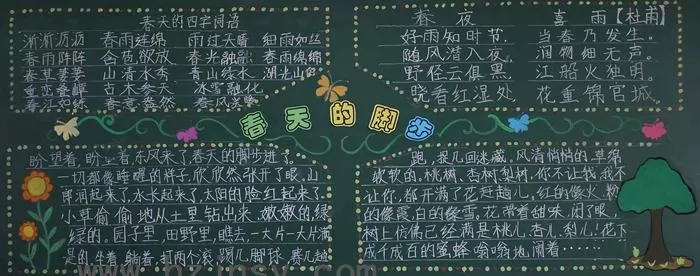 春天的四字词语
淅淅沥沥 春雨连绵 雨过天晴 细雨如丝
春雨阵阵 含苞欲放 春光融融 春雨绵绵
春草萋萋 山清水秀 青山绿水 湖光山色
重峦叠嶂 古木参天 冰雪融化
春江如练 春意盎然 春风送暖
春夜喜雨【杜甫】
好雨知时节, 当春乃发生。
随风潜入夜, 润物细无声。
野径云俱黑, 江船火独明。
晓看红湿处 花重锦官城。
春天的脚步
盼望着,盼望着,东风来了,春天的脚步近了。
一切都像睡醒的样子,欣欣然张开了眼。山
朗润起来了,水长起来了,太阳的脸红起来了。
小草偷偷地从土里钻出来,嫩嫩的,绿
绿的。园子里,田野里,瞧去,一大片一大片满
是的。坐着,躺着,打两个滚,踢几脚球,赛几趟
跑,捉几回迷藏。风清悄悄的,草绵
软软的。桃树、杏树、梨树,你不让我,我不
让你,都开满了花赶趟儿。红的像火,粉
的像霞,白的像雪。花带着甜味,闭了眼,
树上仿佛已经满是桃儿、杏儿、梨儿!花下
成千成百的蜜蜂嗡嗡地闹着……